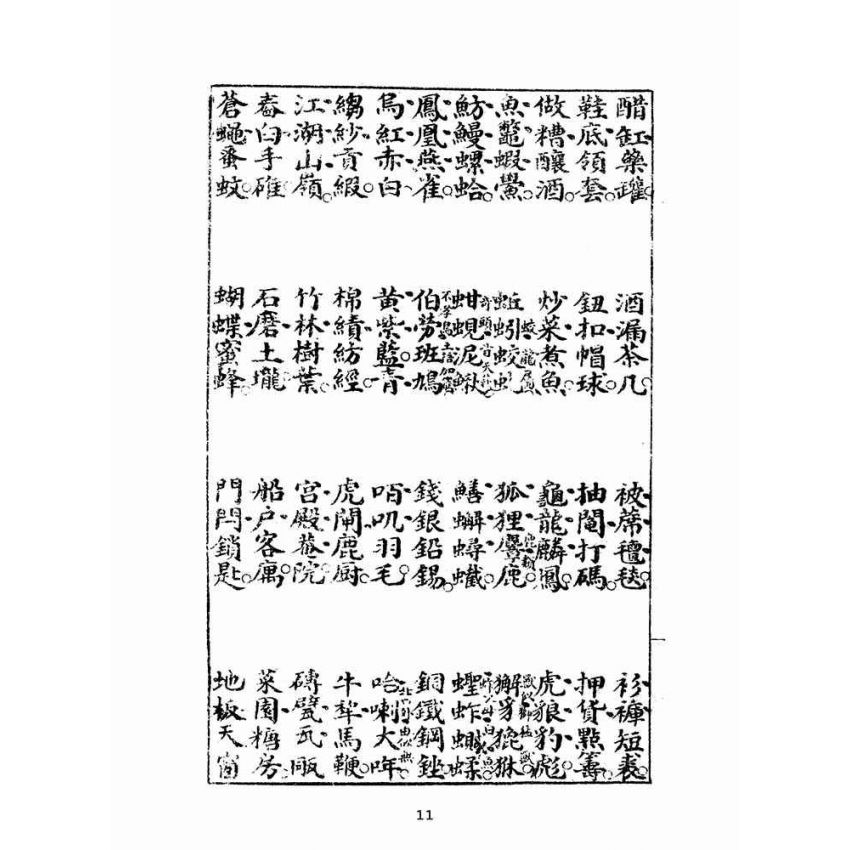 醋缸藥罐 酒漏茶几 被蓆氊毯 衫褲短裘
鞋底領套 鈕扣帽球 抽打碼 押貨點籌
做糟釀酒 炒菜煮魚 龜龍麟鳳 虎狼豹彪
魚鼈蝦鱟 蚯蚓蛟虬 狐狸鹿 獬豸貔貅
魴鰻螺蛤 蚶蜆泥鰍 鱔蠏蟳蠘 蟶蚱
鳳凰燕雀 伯勞班鳩 錢銀鉛錫 銅鐵鋼銼
烏紅赤白 黃紫藍青 咟叽羽毛 哈喇大哖
縐紗貢緞 棉績紡經 虎閘鹿厨 牛犁馬鞭
江湖山嶺 竹林樹葉 宮殿菴院 磚甓瓦
舂臼手碓 石磨土壠 船户客寓 菜園糖房
蒼蠅蚤蚊 蝴蝶蜜蜂 門閂鎖匙 地板天窗
11